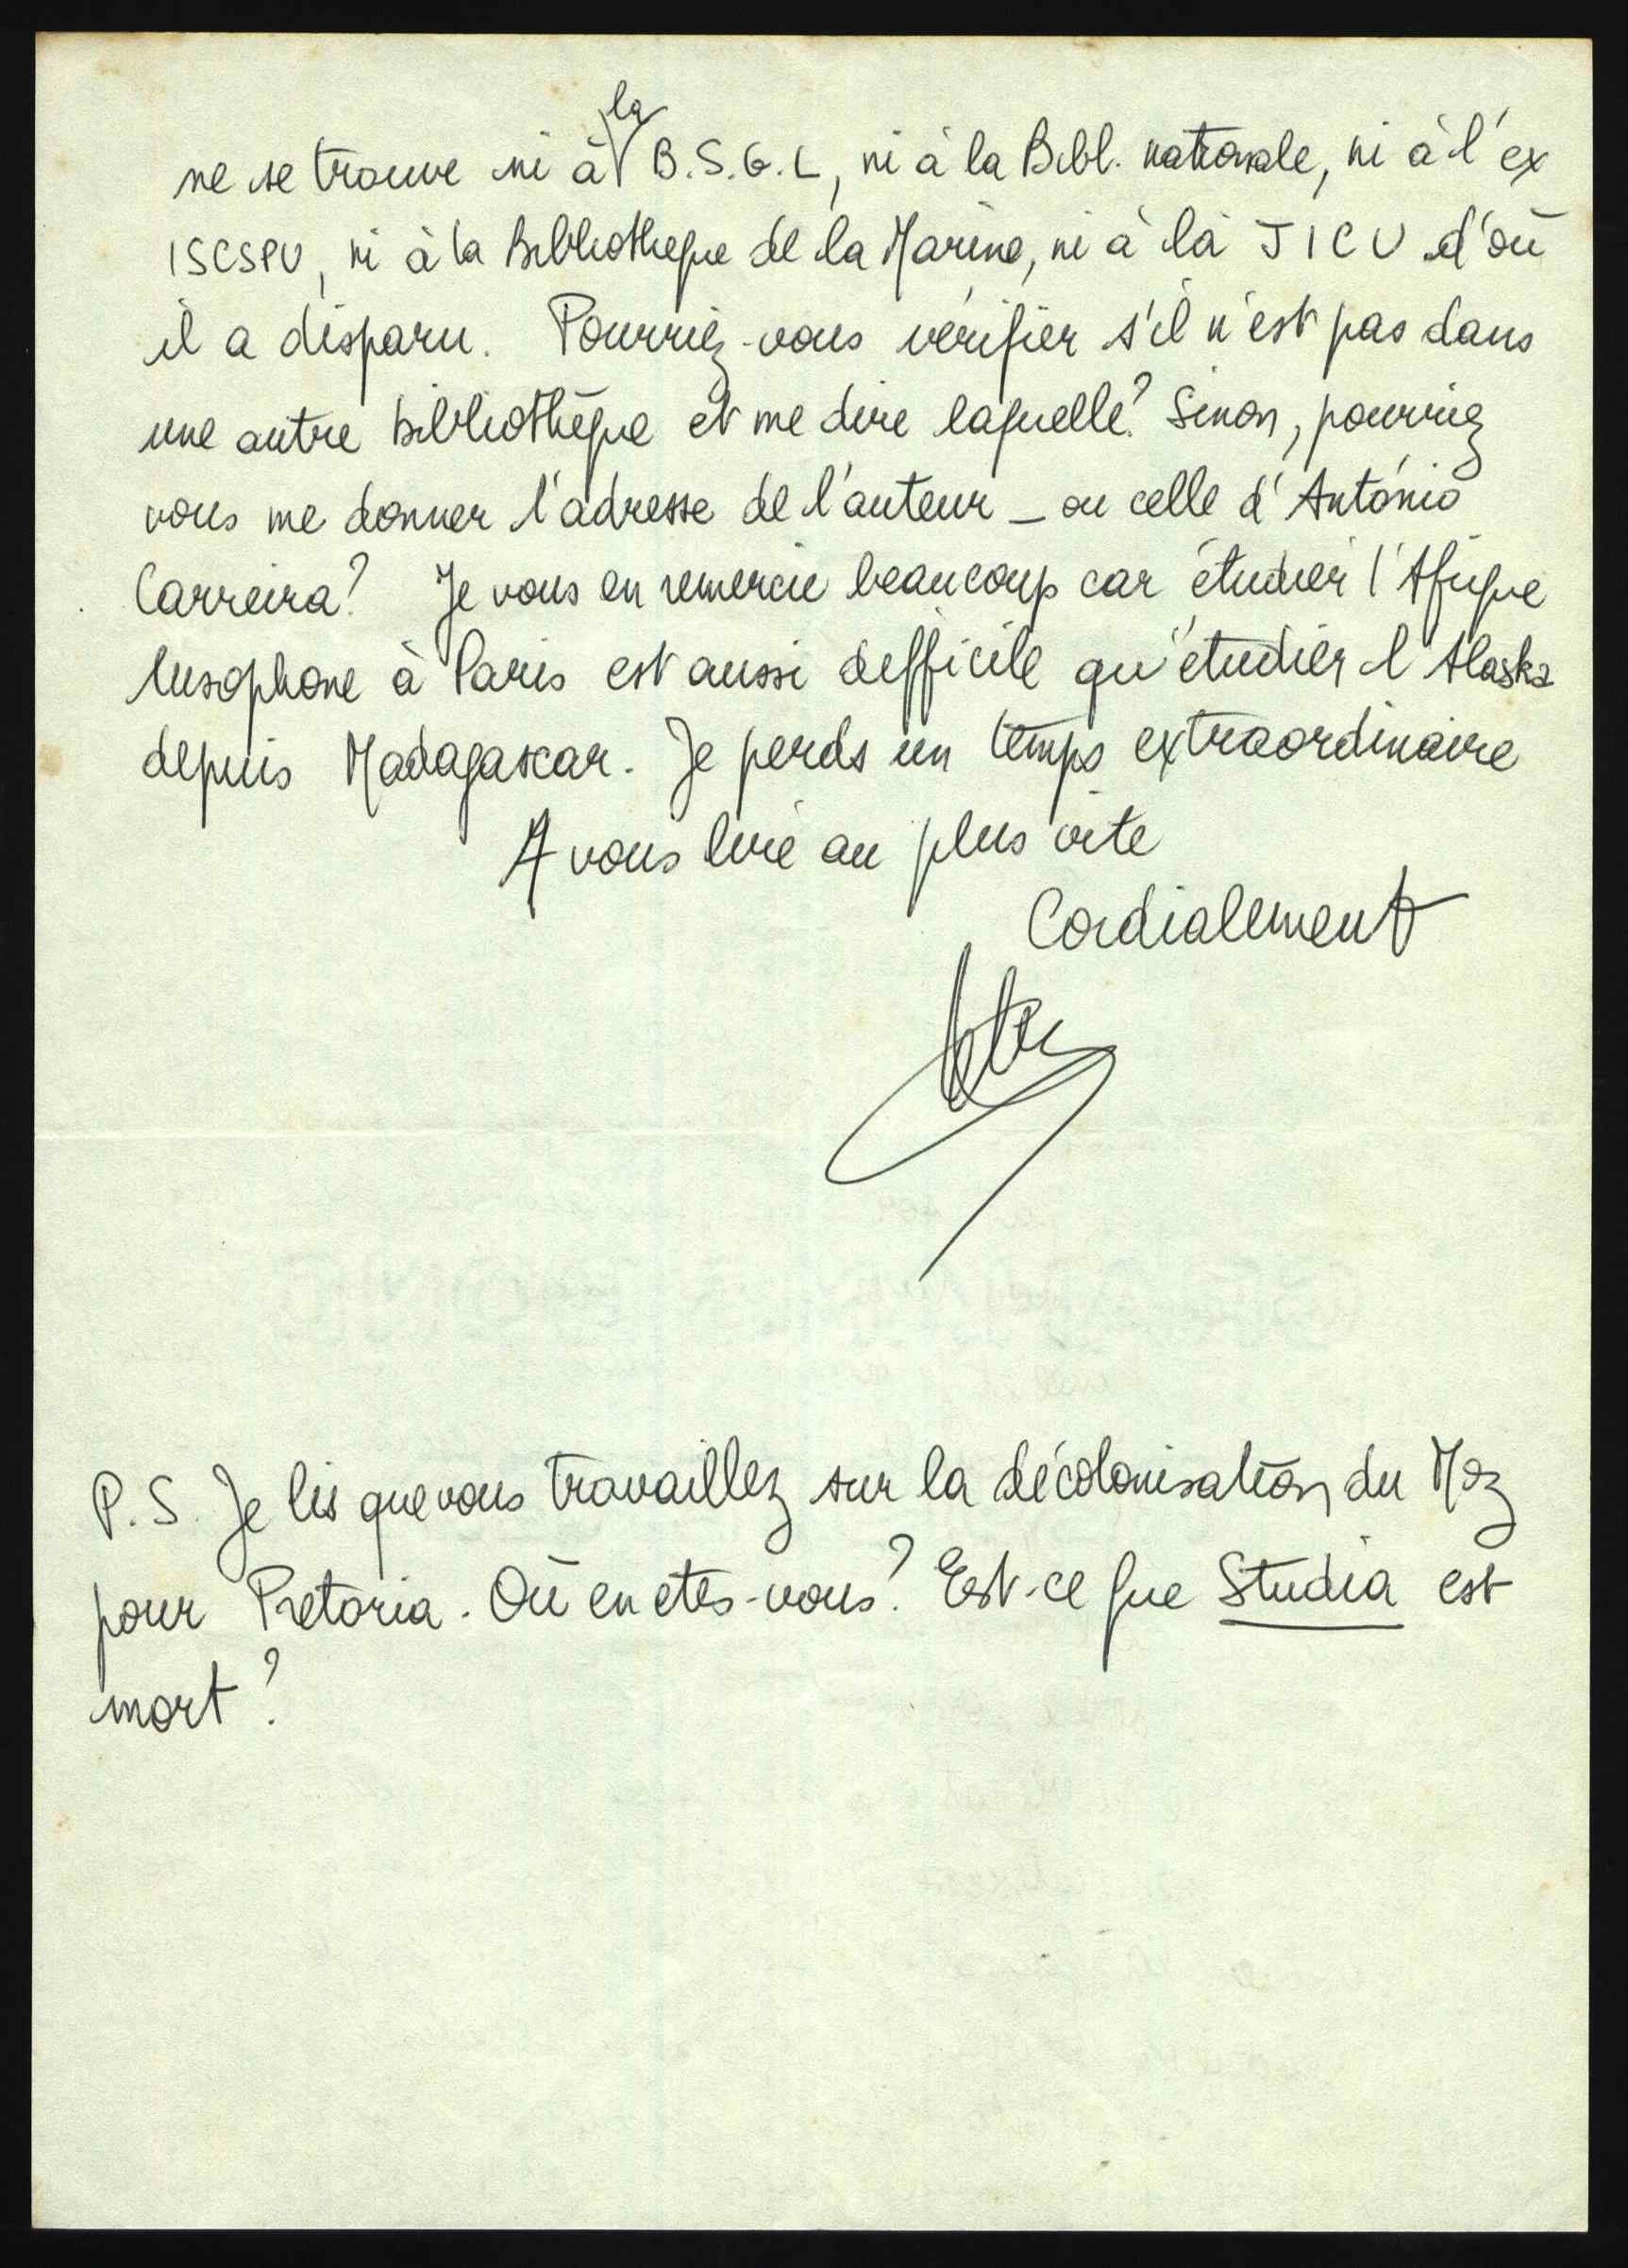 ne se trouve ni à la B.S.G.L, ni à la Bibl. nationale, ni à l'ex
ISCSPU, ni à la Bibliothèque de la Marine, ni à la JICU d'où
il a disparu. Pourriez-vous vérifier s'il n'est pas dans
une autre bibliothèque et me dire laquelle? Sinon, pourriez
vous me donner l'adresse de l'auteur _ ou celle d'António
Carreira? Je vous en remercie beaucoup car étudier l'Afrique
lusophone à Paris est aussi difficile qu'étudier l'Alaska
depuis Madagascar. Je perds un temps extraordinaire
A vous lire au plus vite
Cordialement
P.S. Je lis que vous travaillez sur la décolonisation du Moz
pour Pretoria. Où en etes-vous? Est-ce que Studia est
mort?